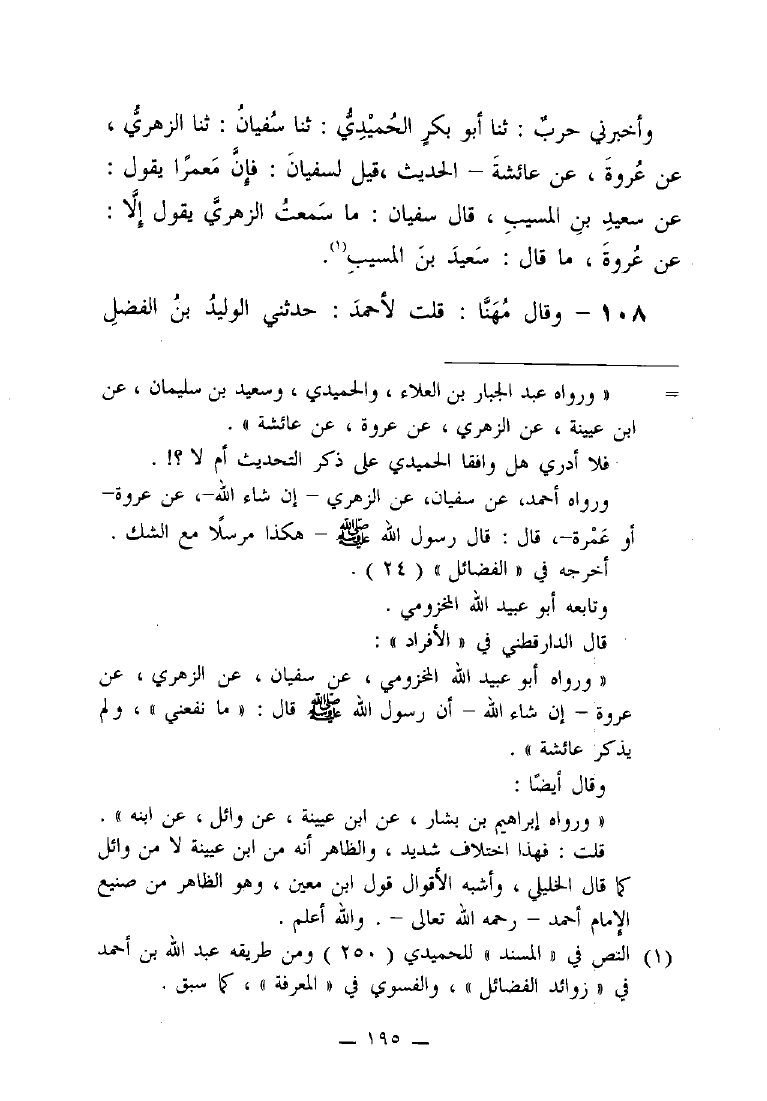 وأخبرني حربٌ : ثنا أبو بكرٍ الحُميْدِيُّ : ثنا سُفيانُ : ثنا الزهريُّ ،
عن عُروةَ ، عن عائشةَ – الحديث ،قيل لسفيانَ : فإِنَّ مَعمرًا يقول :
عن سعيدِ بنِ المسيبِ ، قال سفيان : ما سَمعتُ الزهريَّ يقول إلَّا :
عن عُروةَ ، ما قال : سَعيدَ بنَ المسيبِ(١).
١٠٨ – وقال مُهَنَّا : قلت لأحمدَ : حدثني الوليدُ بنُ الفضلِ
= « ورواه عبد الجبار بن العلاء ، والحميدي ، وسعيد بن سليمان ، عن
ابن عيينة ، عن الزهري ، عن عروة ، عن عائشة » .
فلا أدري هل وافقا الحميدي على ذكر التحديث أم لا ؟! .
ورواه أحمد، عن سفيان، عن الزهري – إن شاء الله–، عن عروة–
أو عَمْرة–، قال : قال رسول الله ﷺ – هكذا مرسلًا مع الشك .
أخرجه في « الفضائل » ( ٢٤ ) .
وتابعه أبو عبيد الله المخزومي .
قال الدارقطني في « الأفراد » :
« ورواه أبو عبيد الله المخزومي ، عن سفيان ، عن الزهري ، عن
عروة – إن شاء الله – أن رسول الله ﷺ قال : « ما نفعني » ، ولم
يذكر عائشة » .
وقال أيضًا :
« ورواه إبراهيم بن بشار ، عن ابن عيينة ، عن وائل ، عن ابنه » .
قلت : فهذا اختلاف شديد ، والظاهر أنه من ابن عيينة لا من وائل
كما قال الخليلي ، وأشبه الأقوال قول ابن معين ، وهو الظاهر من صنيع
الإمام أحمد – رحمه الله تعالى – . والله أعلم .
(١) النص في « المسند » للحميدي ( ٢٥٠ ) ومن طريقه عبد الله بن أحمد
في « زوائد الفضائل » ، والفسوي في « المعرفة » ، كما سبق .
— ١٩٥ —